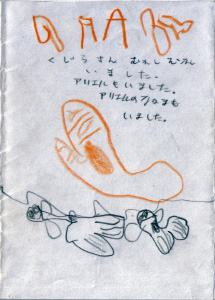 くじらさん むかし むかし
いました。
アリエルもいました。
アリエルのママも
いました。